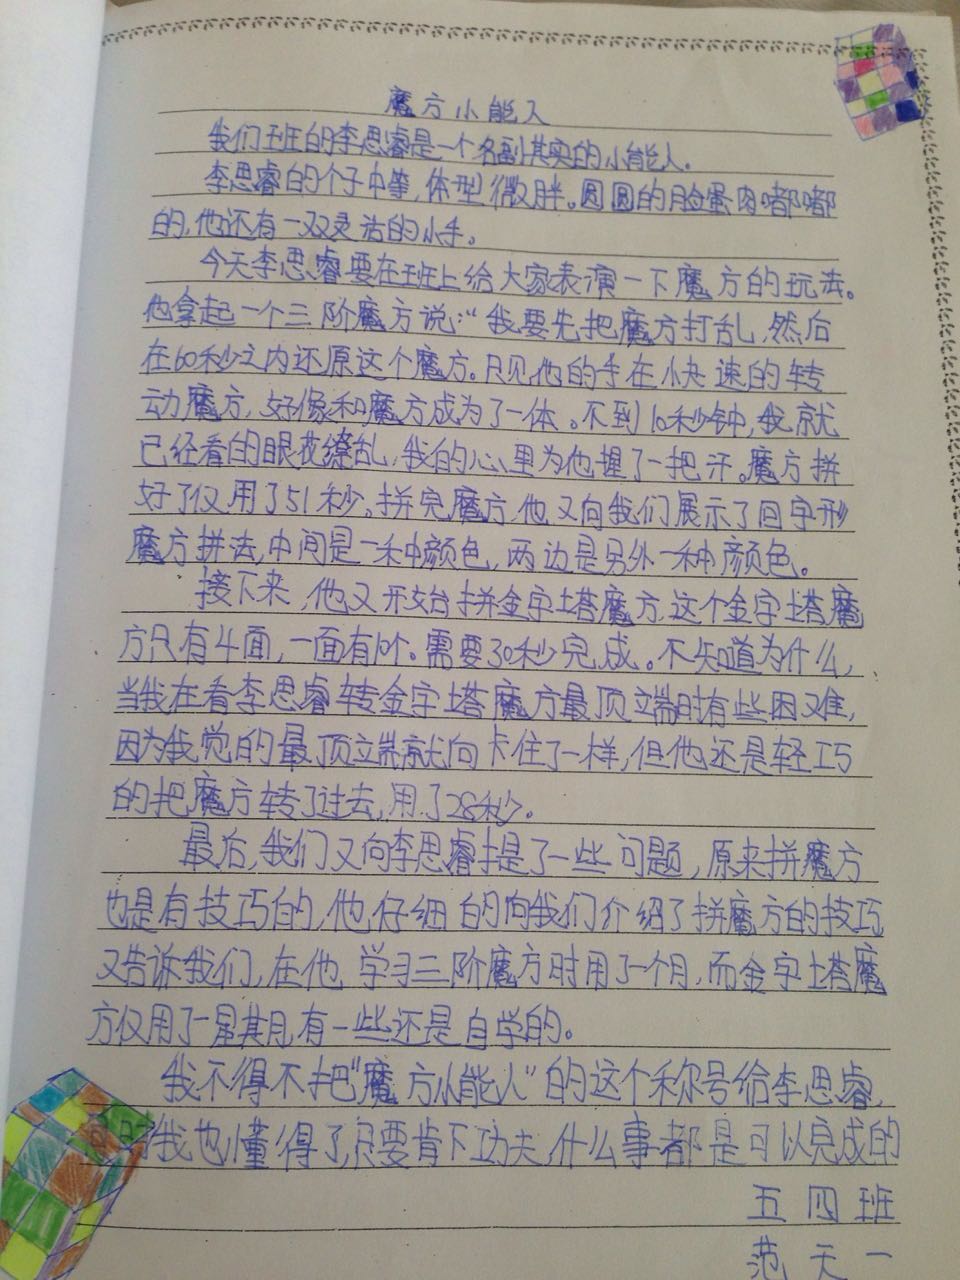 魔方小能人
我们班的李思睿是一个名副其实的小能人。
李思睿的个子中等,体型微胖。圆圆的脸蛋肉嘟嘟
的,他还有一双灵活的小手。
今天李思睿要在班上给大家表演一下魔方的玩法。
他拿起一个三阶魔方说:“我要先把魔方打乱,然后
在60秒之内还原这个魔方。只见他的手在快速的转
动魔方,好像和魔方成为了一体。不到10秒钟,我就
已经看的眼花缭乱,我的心里为他握了一把汗。魔方拼
好了仅用了51秒。拼完魔方,他又向我们展示了回字形
魔方拼法,中间是一种颜色,两边是另外一种颜色。
接下来,他又开始拼金字塔魔方,这个金字塔魔
方只有4面,一面有10个。需要30秒完成。不知道为什么,
当我在看李思睿转金字塔魔方最顶端时有些困难,
因为我觉的最顶端就向卡住了一样,但他还是轻巧
的把魔方转了过去,用了28秒。
最后,我们又向李思睿提了一些问题,原来拼魔方
也是有技巧的,他仔细的向我们介绍了拼魔方的技巧
又告诉我们,在他学习三阶魔方时用了一个月,而金字塔魔
方仅用了一星期,有一些还是自学的。
我不得不把“魔方小能人”的这个称号给李思睿,
我也懂得了,只要肯下功夫,什么事都是可以完成的
五四班
范天一